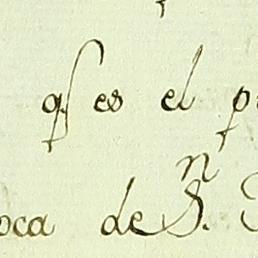 qͤ es el p
oca de S.ⁿ